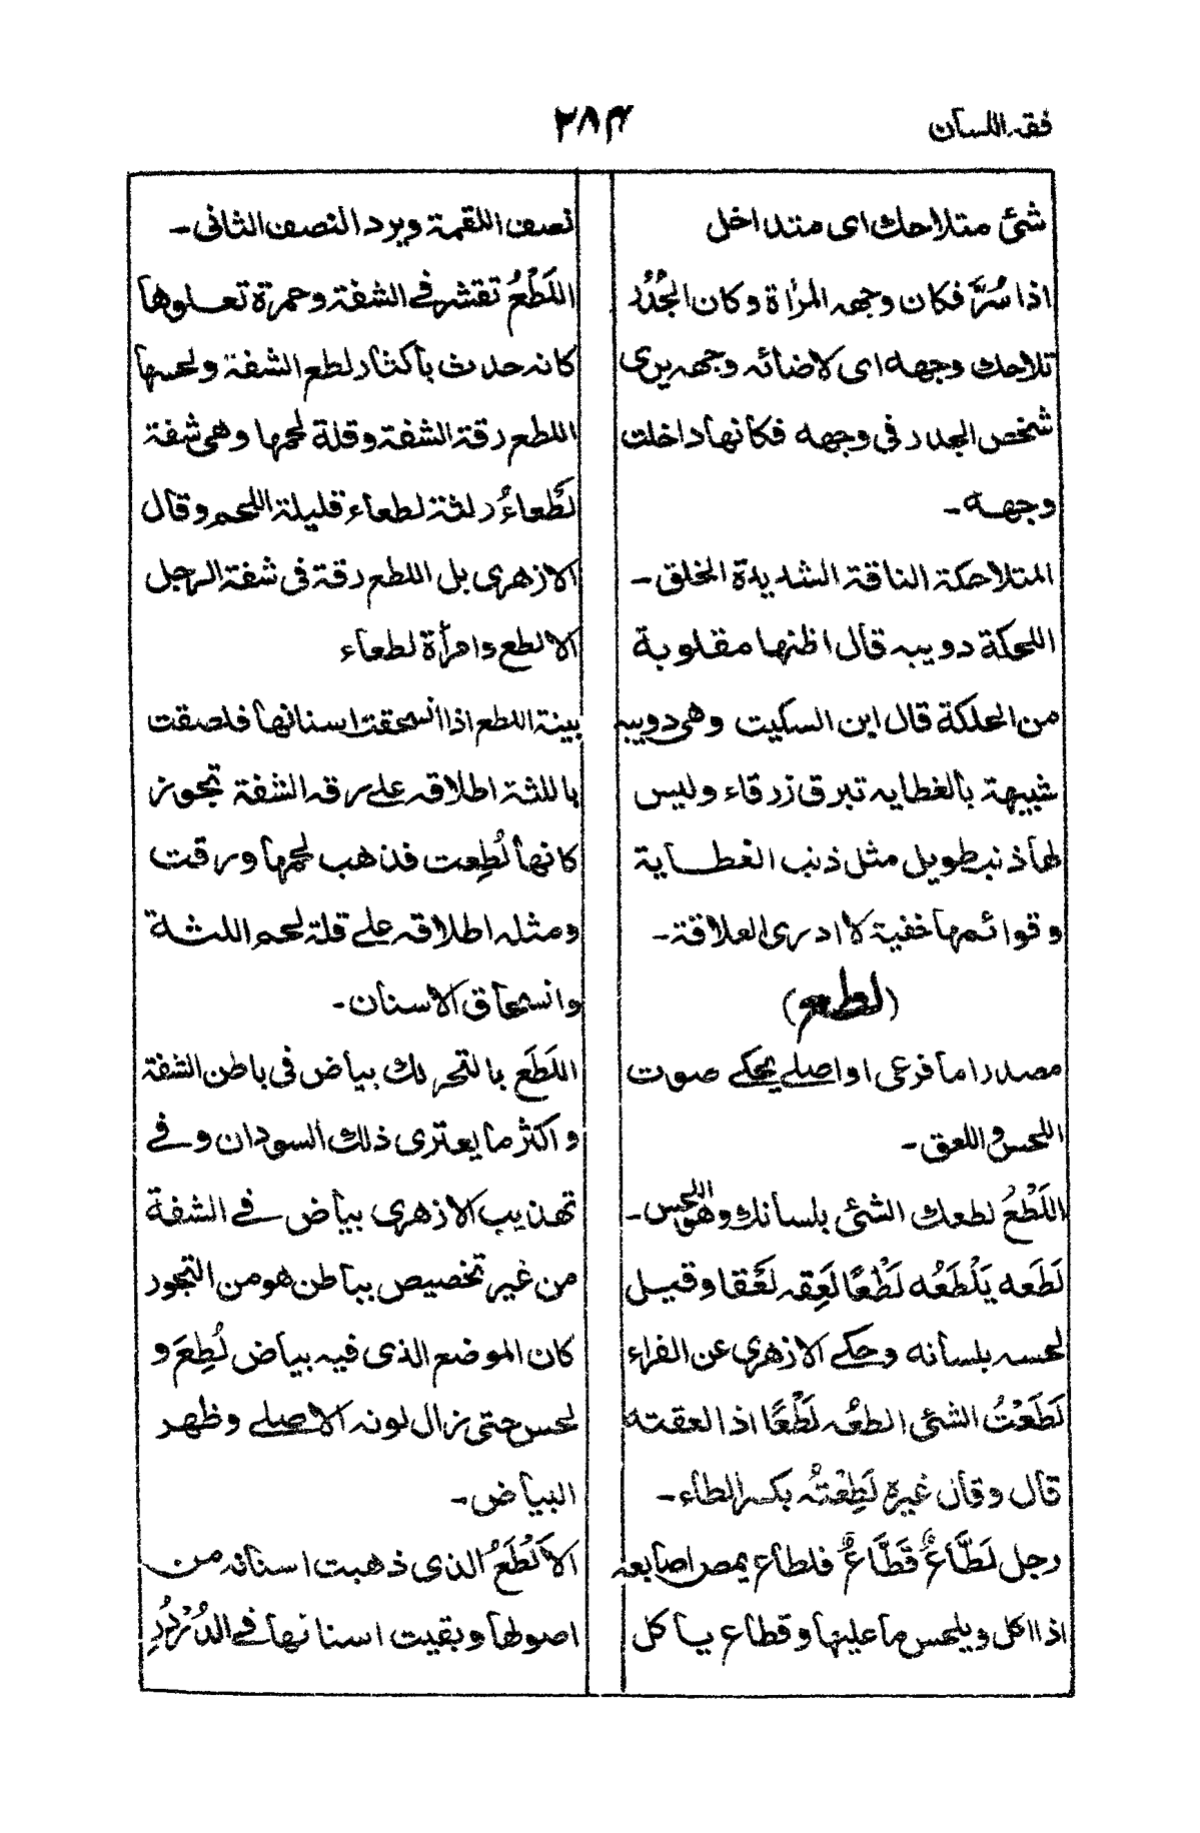 فقہ اللسان
۲۸۴
شئ متلاحك اى متداخل
اذا سُرَّ فكان وجهہ المرٰاة وكان الجُدُرُ
تلاحك وجهه اى لاضائہ وجهہ يرى
شخص الجدر فى وجهه فكانها داخلت
وجهه۔
المتلاحكة الناقة الشديدة الخلق۔
اللحكة دويبہ قال اظنها مقلوبة
من الحلكة قال ابن السكيت وهى دويبہ
شبيهة بالغطايہ تبرق زرقاء وليس
لها ذنب طويل مثل ذنب الغطاية
وقوائمها خفية لا ادرى العلاقة۔
(لطع)
مصدر اما فرعى او اصلے يحكے صوت
اللحس واللعق۔
اللَطْعُ لطعك الشئ بلسانك وهو اللحس۔
لَطَعه يَلْطَعُه لَطْعًا لَعِقہ لَعَقا وقيل
لحسه بلسانه وحكے الازهرى عن الفراء
لَطَعْتُ الشئ الطعُہ لَطْعًا اذا لعقته
قال وقال غيرہ لَطِعْتُہ بكسر الطاء۔
رجل لَطَّاعٌ قَطَّاعٌ فلطاع يمص اصابعہ
اذا اكل ويلحس ما عليها وقطاع يأكل
نصف اللقمة ويرد النصف الثانى۔
اللَطْعُ تقشر فے الشفة وحمرة تعلوها
كانہ حدث باكثار لطع الشفة ولحسها
اللطع رقة الشفة وقلة لحمها وهى شفة
لَطعاءُ ولثة لطعاء قليلة اللحم وقال
الازهرى بل اللطع رقة فى شفة الرجل
الالطع وامرأة لطعاء
بينة اللطع اذا انسحقت اسنانها فلصقت
باللثة اطلاقہ علے رقہ الشفة تجوز
كانها لُطِعت فذهب لحمها ورقت
ومثلہ اطلاقہ علے قلة لحم اللثة
وانسحاق الاسنان۔
اللَطَع بالتحريك بياض فى باطن الشفة
واكثر ما يعترى ذلك السودان وفے
تهذيب الازهرى بياض فے الشفة
من غير تخصيص بباطن هو من التجوز
كان الموضع الذى فيہ بياض لُطِعَ و
لحس حتى زال لونہ الاصلے وظهر
البياض۔
الاَلْطَعُ الذى ذهبت اسنانہ من
اصولها وبقيت اسنانها فے الدُرْدُرِ